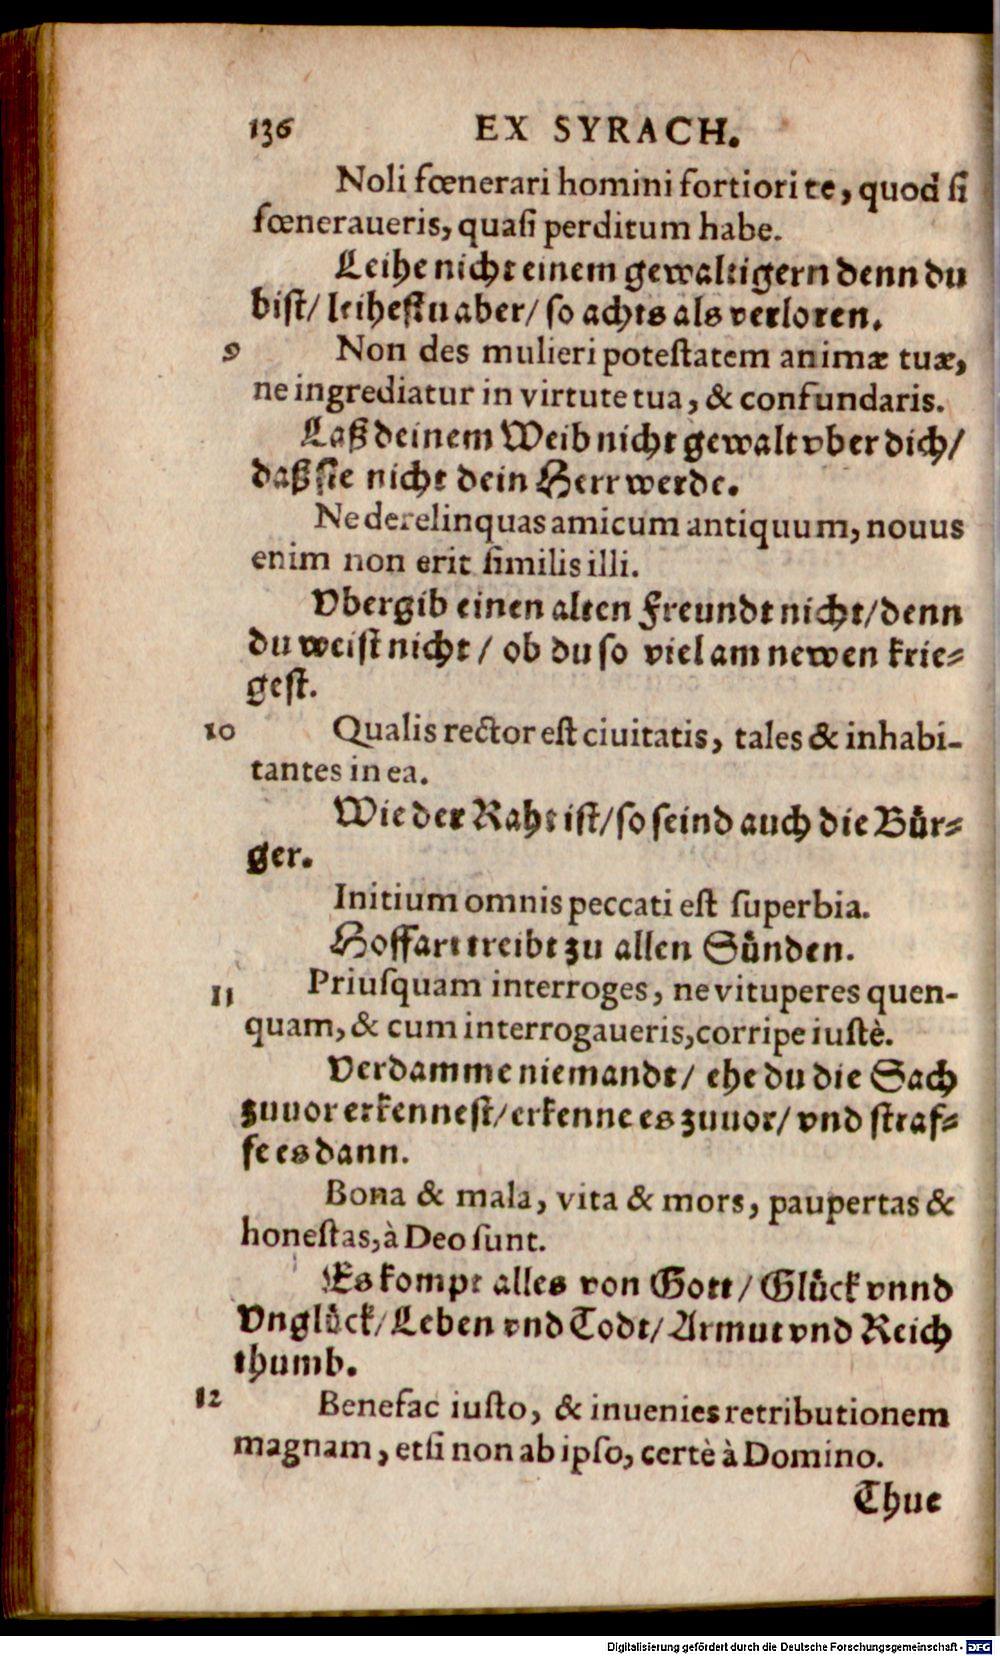 136 EX SYRACH.
Noli fœnerari homini fortiori te, quod ſi
fœneraueris, quaſi perditum habe.
Leihe nicht einem gewaltigern denn du
biſt/ leiheſtu aber/ ſo achts als verloren.
9 Non des mulieri poteſtatem animæ tuæ,
ne ingrediatur in virtute tua, & confundaris.
Laß deinem Weib nicht gewalt vber dich/
daß ſie nicht dein Herr werde.
Ne derelinquas amicum antiquum, nouus
enim non erit ſimilis illi.
Vbergib einen alten Freundt nicht/denn
du weiſt nicht / ob du ſo viel am newen krie-
geſt.
10 Qualis rector eſt ciuitatis, tales & inhabi-
tantes in ea.
Wie der Raht iſt/ſo ſeind auch die Bůr-
ger.
Initium omnis peccati eſt ſuperbia.
Hoffart treibt zu allen Sůnden.
11 Priuſquam interroges, ne vituperes quen-
quam, & cum interrogaueris,corripe iuſtè.
Verdamme niemandt/ ehe du die Sach
zuuor erkenneſt/erkenne es zuuor/ vnd ſtraf-
fe es dann.
Bona & mala, vita & mors, paupertas &
honeſtas,à Deo ſunt.
Es kompt alles von Gott/ Glůck vnnd
Vnglůck/Leben vnd Todt/ Armut vnd Reich
thumb.
12 Benefac iuſto, & inuenies retributionem
magnam, etſi non ab ipſo, certè à Domino.
Thue
Digitalisierung gefördert durch die Deutsche Forschungsgemeinschaft - DFG